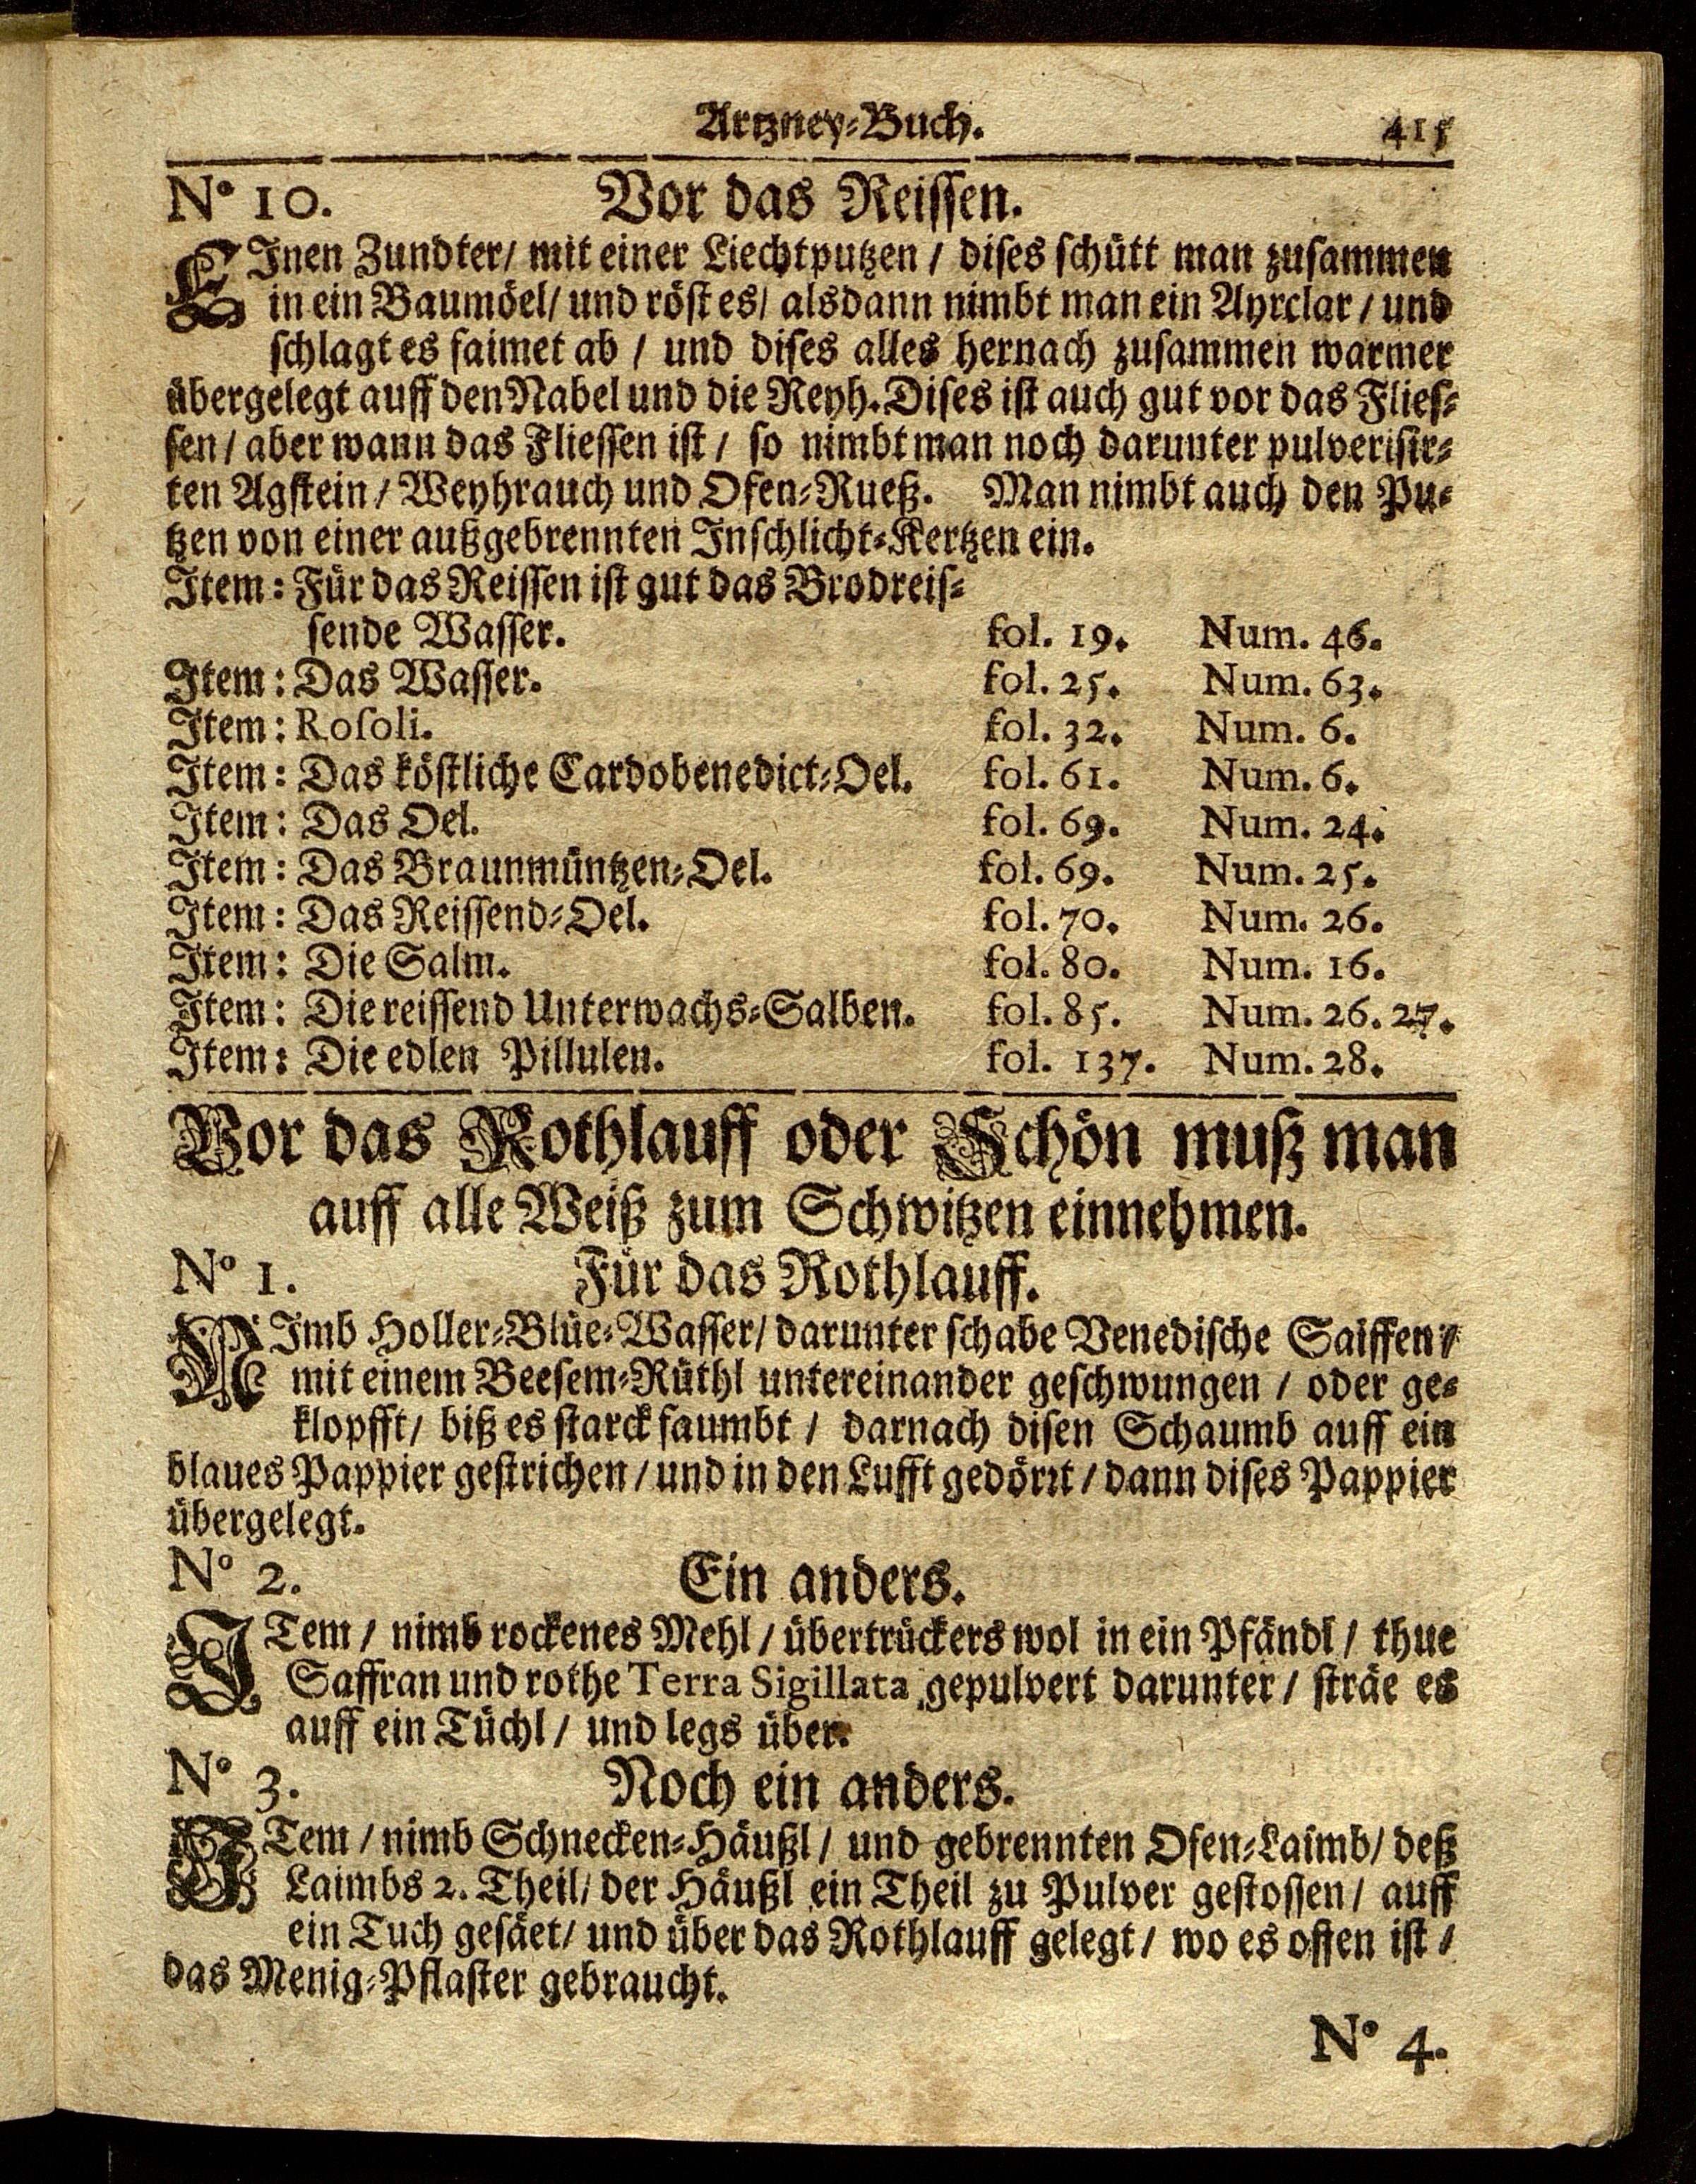 Artzney-Buch. 415
N° 10. Vor das Reissen.
EInen Zundter/ mit einer Liechtputzen / dises schütt man zusammen
in ein Baumöel/ und röst es/ alsdann nimbt man ein Ayrclar / und
schlagt es faimet ab / und dises alles hernach zusammen warmer
übergelegt auff den Nabel und die Reyh. Dises ist auch gut vor das Flies-
sen / aber wann das Fliessen ist / so nimbt man noch darunter pulverisir-
ten Agstein / Weyhrauch und Ofen-Rueß. Man nimbt auch den Pu-
tzen von einer außgebrennten Inschlicht-Kertzen ein.
Item: Für das Reissen ist gut das Brodreis-
sende Wasser. fol. 19. Num. 46.
Item: Das Wasser. fol. 25. Num. 63.
Item: Rosoli. fol. 32. Num. 6.
Item: Das köstliche Cardobenedict-Oel. fol. 61. Num. 6.
Item: Das Oel. fol. 69. Num. 24.
Item: Das Braunmüntzen-Oel. fol. 69. Num. 25.
Item: Das Reissend-Oel. fol. 70. Num. 26.
Item: Die Salm. fol. 80. Num. 16.
Item: Die reissend Unterwachs-Salben. fol. 85. Num. 26. 27.
Item: Die edlen Pillulen. fol. 137. Num. 28.
Vor das Rothlauff oder Schön muß man
auff alle Weiß zum Schwitzen einnehmen.
N° 1. Für das Rothlauff.
NImb Holler-Blüe-Wasser/ darunter schabe Venedische Saiffen /
mit einem Beesem-Rüthl untereinander geschwungen / oder ge-
klopfft / biß es starck faumbt / darnach disen Schaumb auff ein
blaues Pappier gestrichen / und in den Lufft gedörrt / dann dises Pappier
übergelegt.
N° 2. Ein anders.
ITem / nimb rockenes Mehl / übertrückers wol in ein Pfändl / thue
Saffran und rothe Terra Sigillata gepulvert darunter / sträe es
auff ein Tüchl / und legs über.
N° 3. Noch ein anders.
ITem / nimb Schnecken-Häußl / und gebrennten Ofen-Laimb/ deß
Laimbs 2. Theil/ der Häußl ein Theil zu Pulver gestossen / auff
ein Tuch gesäet/ und über das Rothlauff gelegt / wo es offen ist /
das Menig-Pflaster gebraucht.
N° 4.